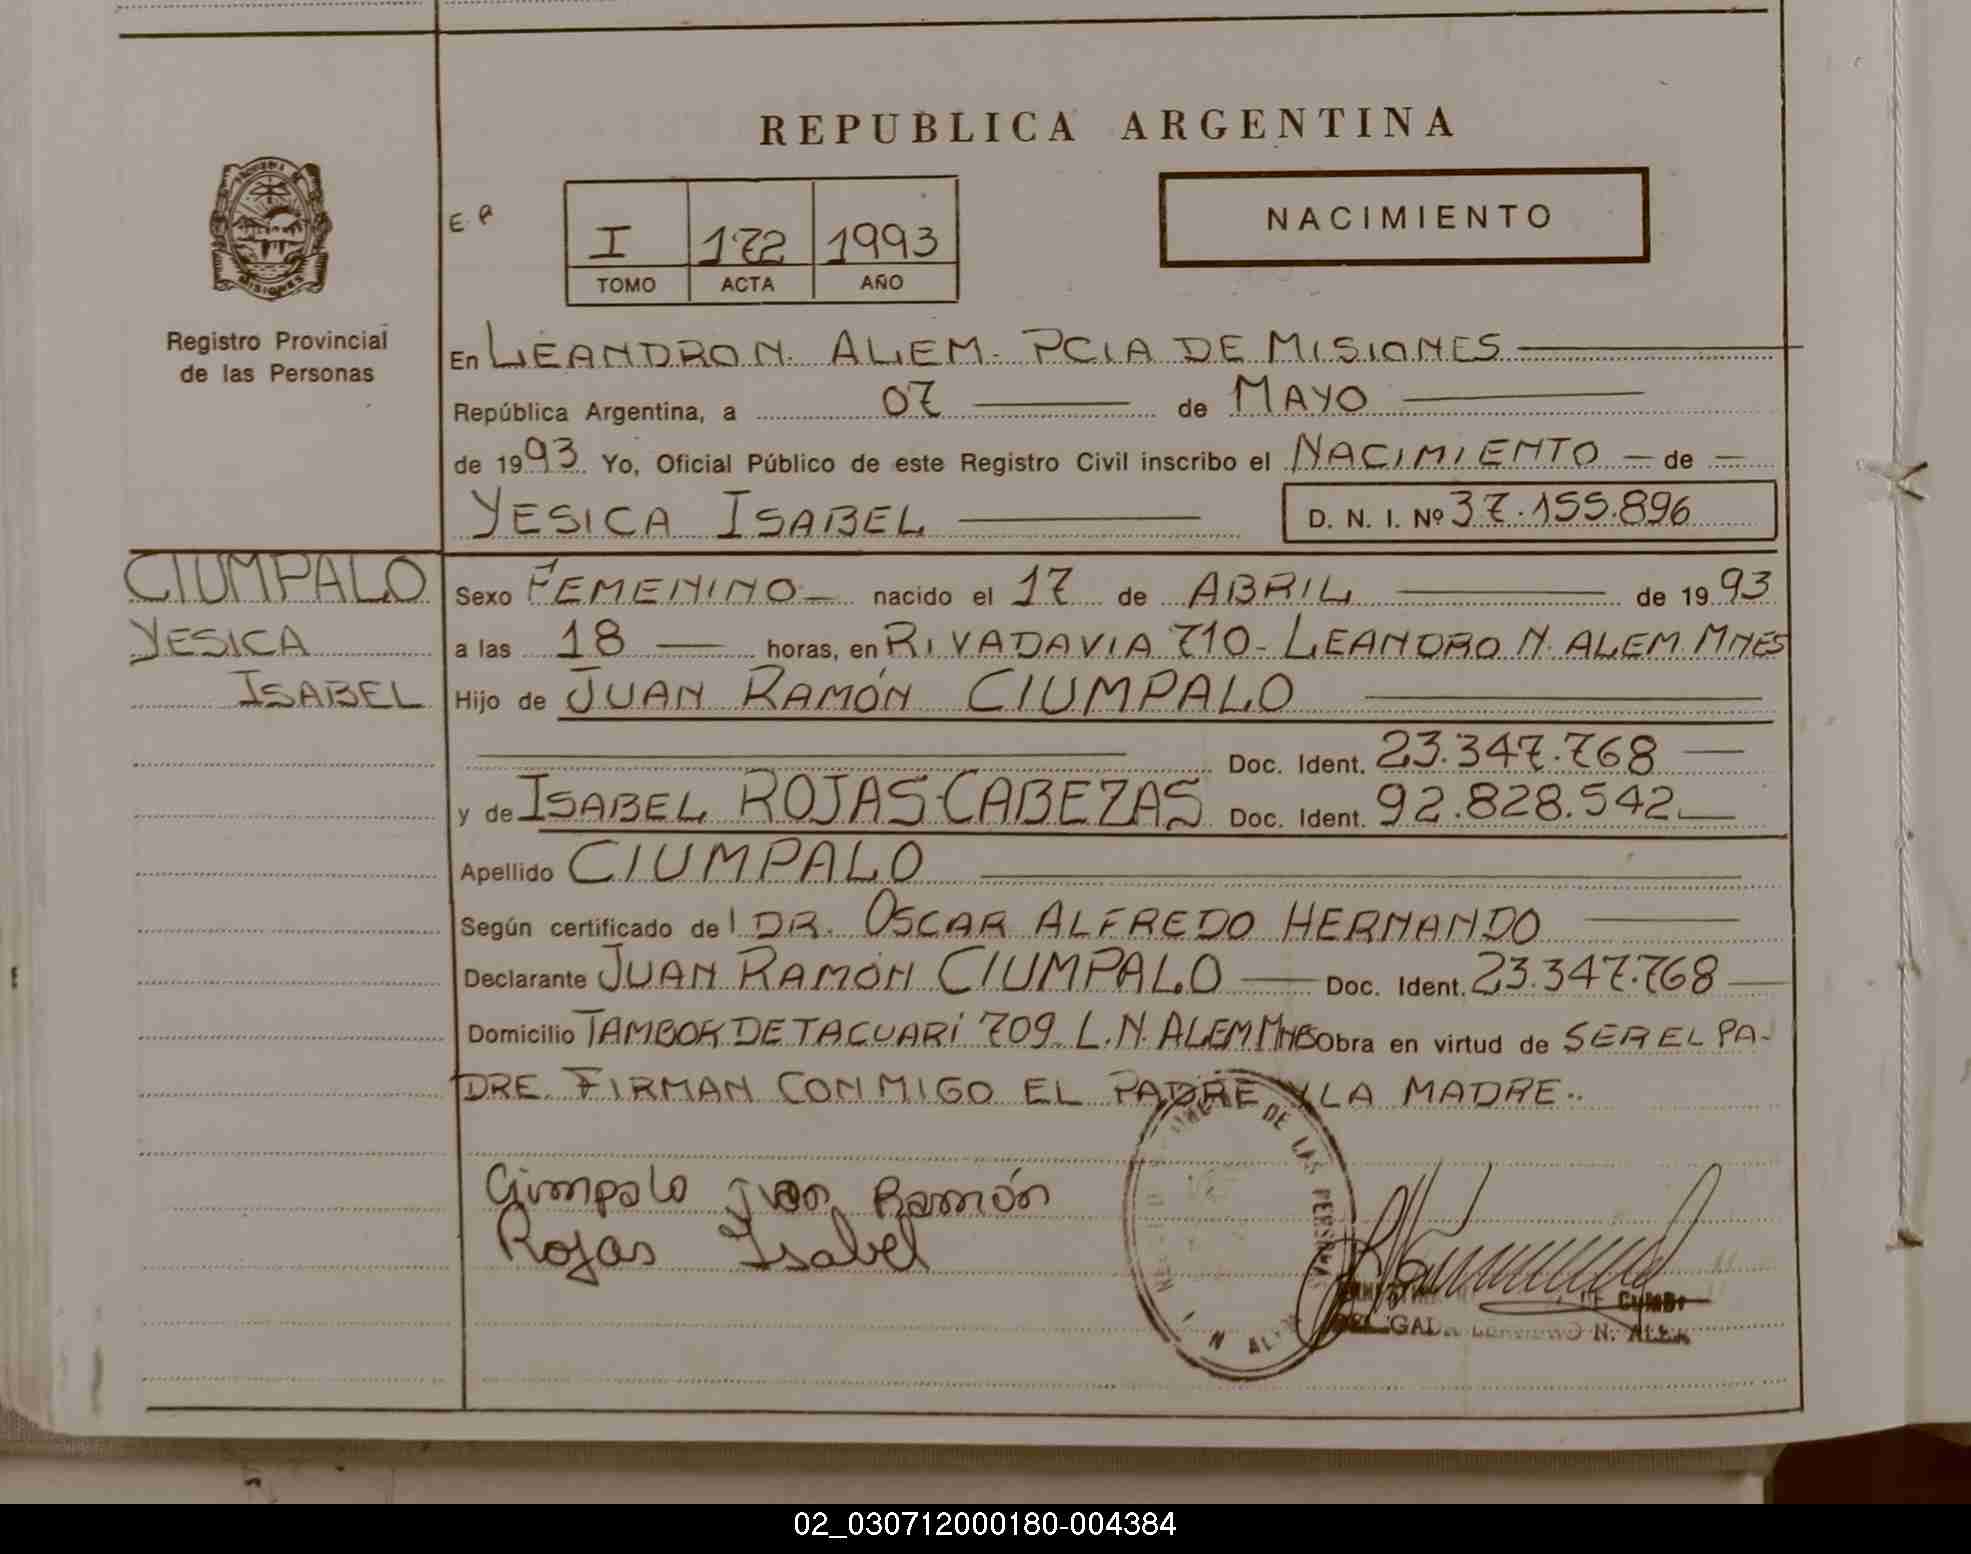 REPUBLICA ARGENTINA
E. P
I 172 1993
TOMO ACTA AÑO
NACIMIENTO
Registro Provincial
de las Personas
En LEANDRO N. ALEM. PCIA DE MISIONES
República Argentina, a 07 de MAYO
de 1993 Yo, Oficial Público de este Registro Civil inscribo el NACIMIENTO de
YESICA ISABEL D. N. I. Nº 37.155.896
CIUMPALO
YESICA
ISABEL
Sexo FEMENINO nacido el 17 de ABRIL de 1993
a las 18 horas, en RIVADAVIA 710- LEANDRO N. ALEM MNES
Hijo de JUAN RAMÓN CIUMPALO
Doc. Ident. 23.347.768
y de ISABEL ROJAS-CABEZAS Doc. Ident. 92.828.542
Apellido CIUMPALO
Según certificado del DR. OSCAR ALFREDO HERNANDO
Declarante JUAN RAMÓN CIUMPALO Doc. Ident. 23.347.768
Domicilio TAMBOR DE TACUARÍ 709 L.N. ALEM MNES Obra en virtud de SER EL PA-
DRE. FIRMAN CONMIGO EL PADRE Y LA MADRE..
Ciumpalo Juan Ramón
Rojas Isabel
DE LAS PERSONAS
N. ALEM
02_030712000180-004384